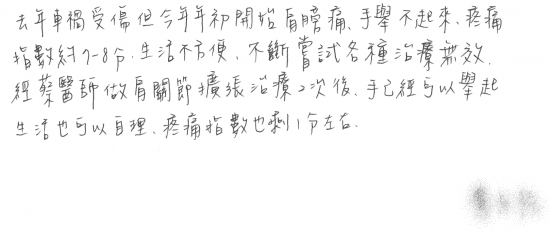 去年車禍受傷但今年年初開始肩膀痛、手舉不起來、疼痛
指數約7-8分、生活不方便、不斷嘗試各種治療無效.
經蔡醫師做肩關節擴張治療2次後、手已經可以舉起
生活也可以自理、疼痛指數也剩1分左右.